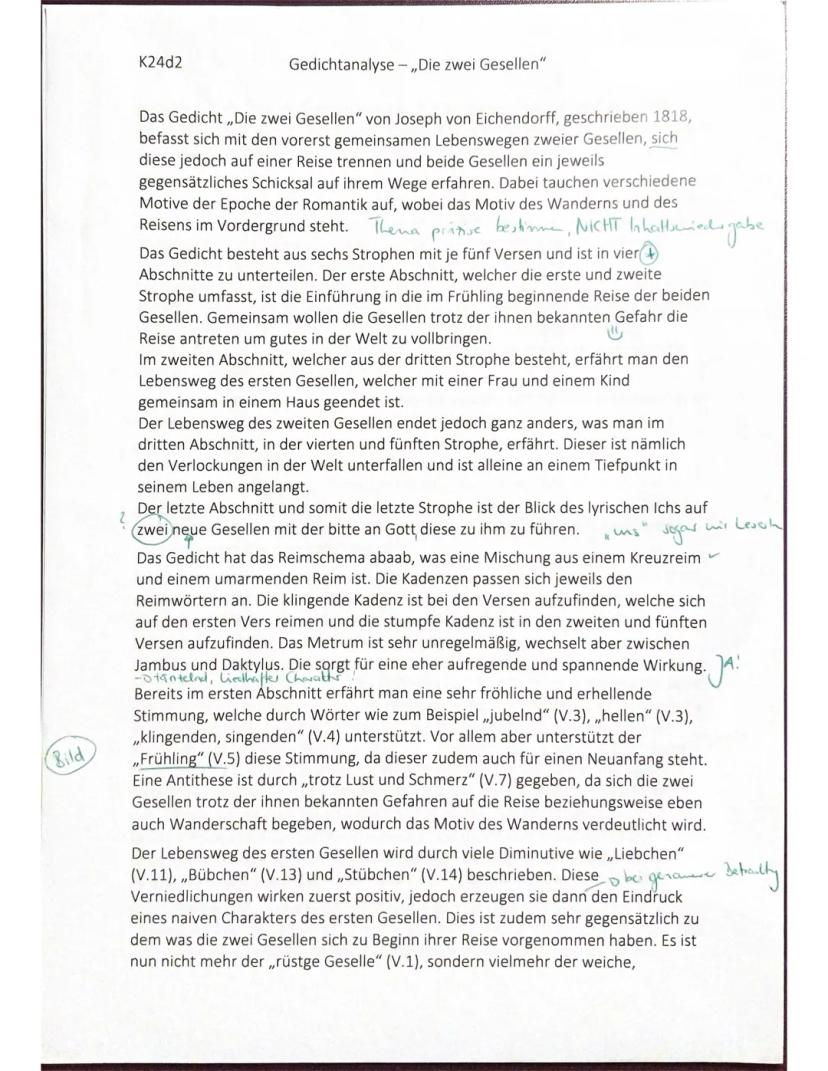 K24d2 Gedichtanalyse – „Die zwei Gesellen“
Das Gedicht „Die zwei Gesellen“ von Joseph von Eichendorff, geschrieben 1818,
befasst sich mit den vorerst gemeinsamen Lebenswegen zweier Gesellen, sich
diese jedoch auf einer Reise trennen und beide Gesellen ein jeweils
gegensätzliches Schicksal auf ihrem Wege erfahren. Dabei tauchen verschiedene
Motive der Epoche der Romantik auf, wobei das Motiv des Wanderns und des
Reisens im Vordergrund steht. Thema präzise bestimmen, NICHT Inhaltswiedergabe
Das Gedicht besteht aus sechs Strophen mit je fünf Versen und ist in vier
Abschnitte zu unterteilen. Der erste Abschnitt, welcher die erste und zweite
Strophe umfasst, ist die Einführung in die im Frühling beginnende Reise der beiden
Gesellen. Gemeinsam wollen die Gesellen trotz der ihnen bekannten Gefahr die
Reise antreten um gutes in der Welt zu vollbringen.
Im zweiten Abschnitt, welcher aus der dritten Strophe besteht, erfährt man den
Lebensweg des ersten Gesellen, welcher mit einer Frau und einem Kind
gemeinsam in einem Haus geendet ist.
Der Lebensweg des zweiten Gesellen endet jedoch ganz anders, was man im
dritten Abschnitt, in der vierten und fünften Strophe, erfährt. Dieser ist nämlich
den Verlockungen in der Welt unterfallen und ist alleine an einem Tiefpunkt in
seinem Leben angelangt.
Der letzte Abschnitt und somit die letzte Strophe ist der Blick des lyrischen Ichs auf
? zwei neue Gesellen mit der bitte an Gott, diese zu ihm zu führen. „uns“ sogar
Das Gedicht hat das Reimschema abaab, was eine Mischung aus einem Kreuzreim
und einem umarmenden Reim ist. Die Kadenzen passen sich jeweils den
Reimwörtern an. Die klingende Kadenz ist bei den Versen aufzufinden, welche sich
auf den ersten Vers reimen und die stumpfe Kadenz ist in den zweiten und fünften
Versen aufzufinden. Das Metrum ist sehr unregelmäßig, wechselt aber zwischen
Jambus und Daktylus. Die sorgt für eine eher aufregende und spannende Wirkung. A!
tänzelnd, liedhafter Charakter!
Bereits im ersten Abschnitt erfährt man eine sehr fröhliche und erhellende
Stimmung, welche durch Wörter wie zum Beispiel „jubelnd“ (V.3), „hellen“ (V.3),
„klingenden, singenden“ (V.4) unterstützt. Vor allem aber unterstützt der
Bild „Frühling“ (V.5) diese Stimmung, da dieser zudem auch für einen Neuanfang steht.
Eine Antithese ist durch „trotz Lust und Schmerz“ (V.7) gegeben, da sich die zwei
Gesellen trotz der ihnen bekannten Gefahren auf die Reise beziehungsweise eben
auch Wanderschaft begeben, wodurch das Motiv des Wanderns verdeutlicht wird.
Der Lebensweg des ersten Gesellen wird durch viele Diminutive wie „Liebchen“
(V.11), „Bübchen“ (V.13) und „Stübchen“ (V.14) beschrieben. Diese bei genauerer
Verniedlichungen wirken zuerst positiv, jedoch erzeugen sie dann den Eindruck
eines naiven Charakters des ersten Gesellen. Dies ist zudem sehr gegensätzlich zu
dem was die zwei Gesellen sich zu Beginn ihrer Reise vorgenommen haben. Es ist
nun nicht mehr der „rüstge Geselle“ (V.1), sondern vielmehr der weiche,